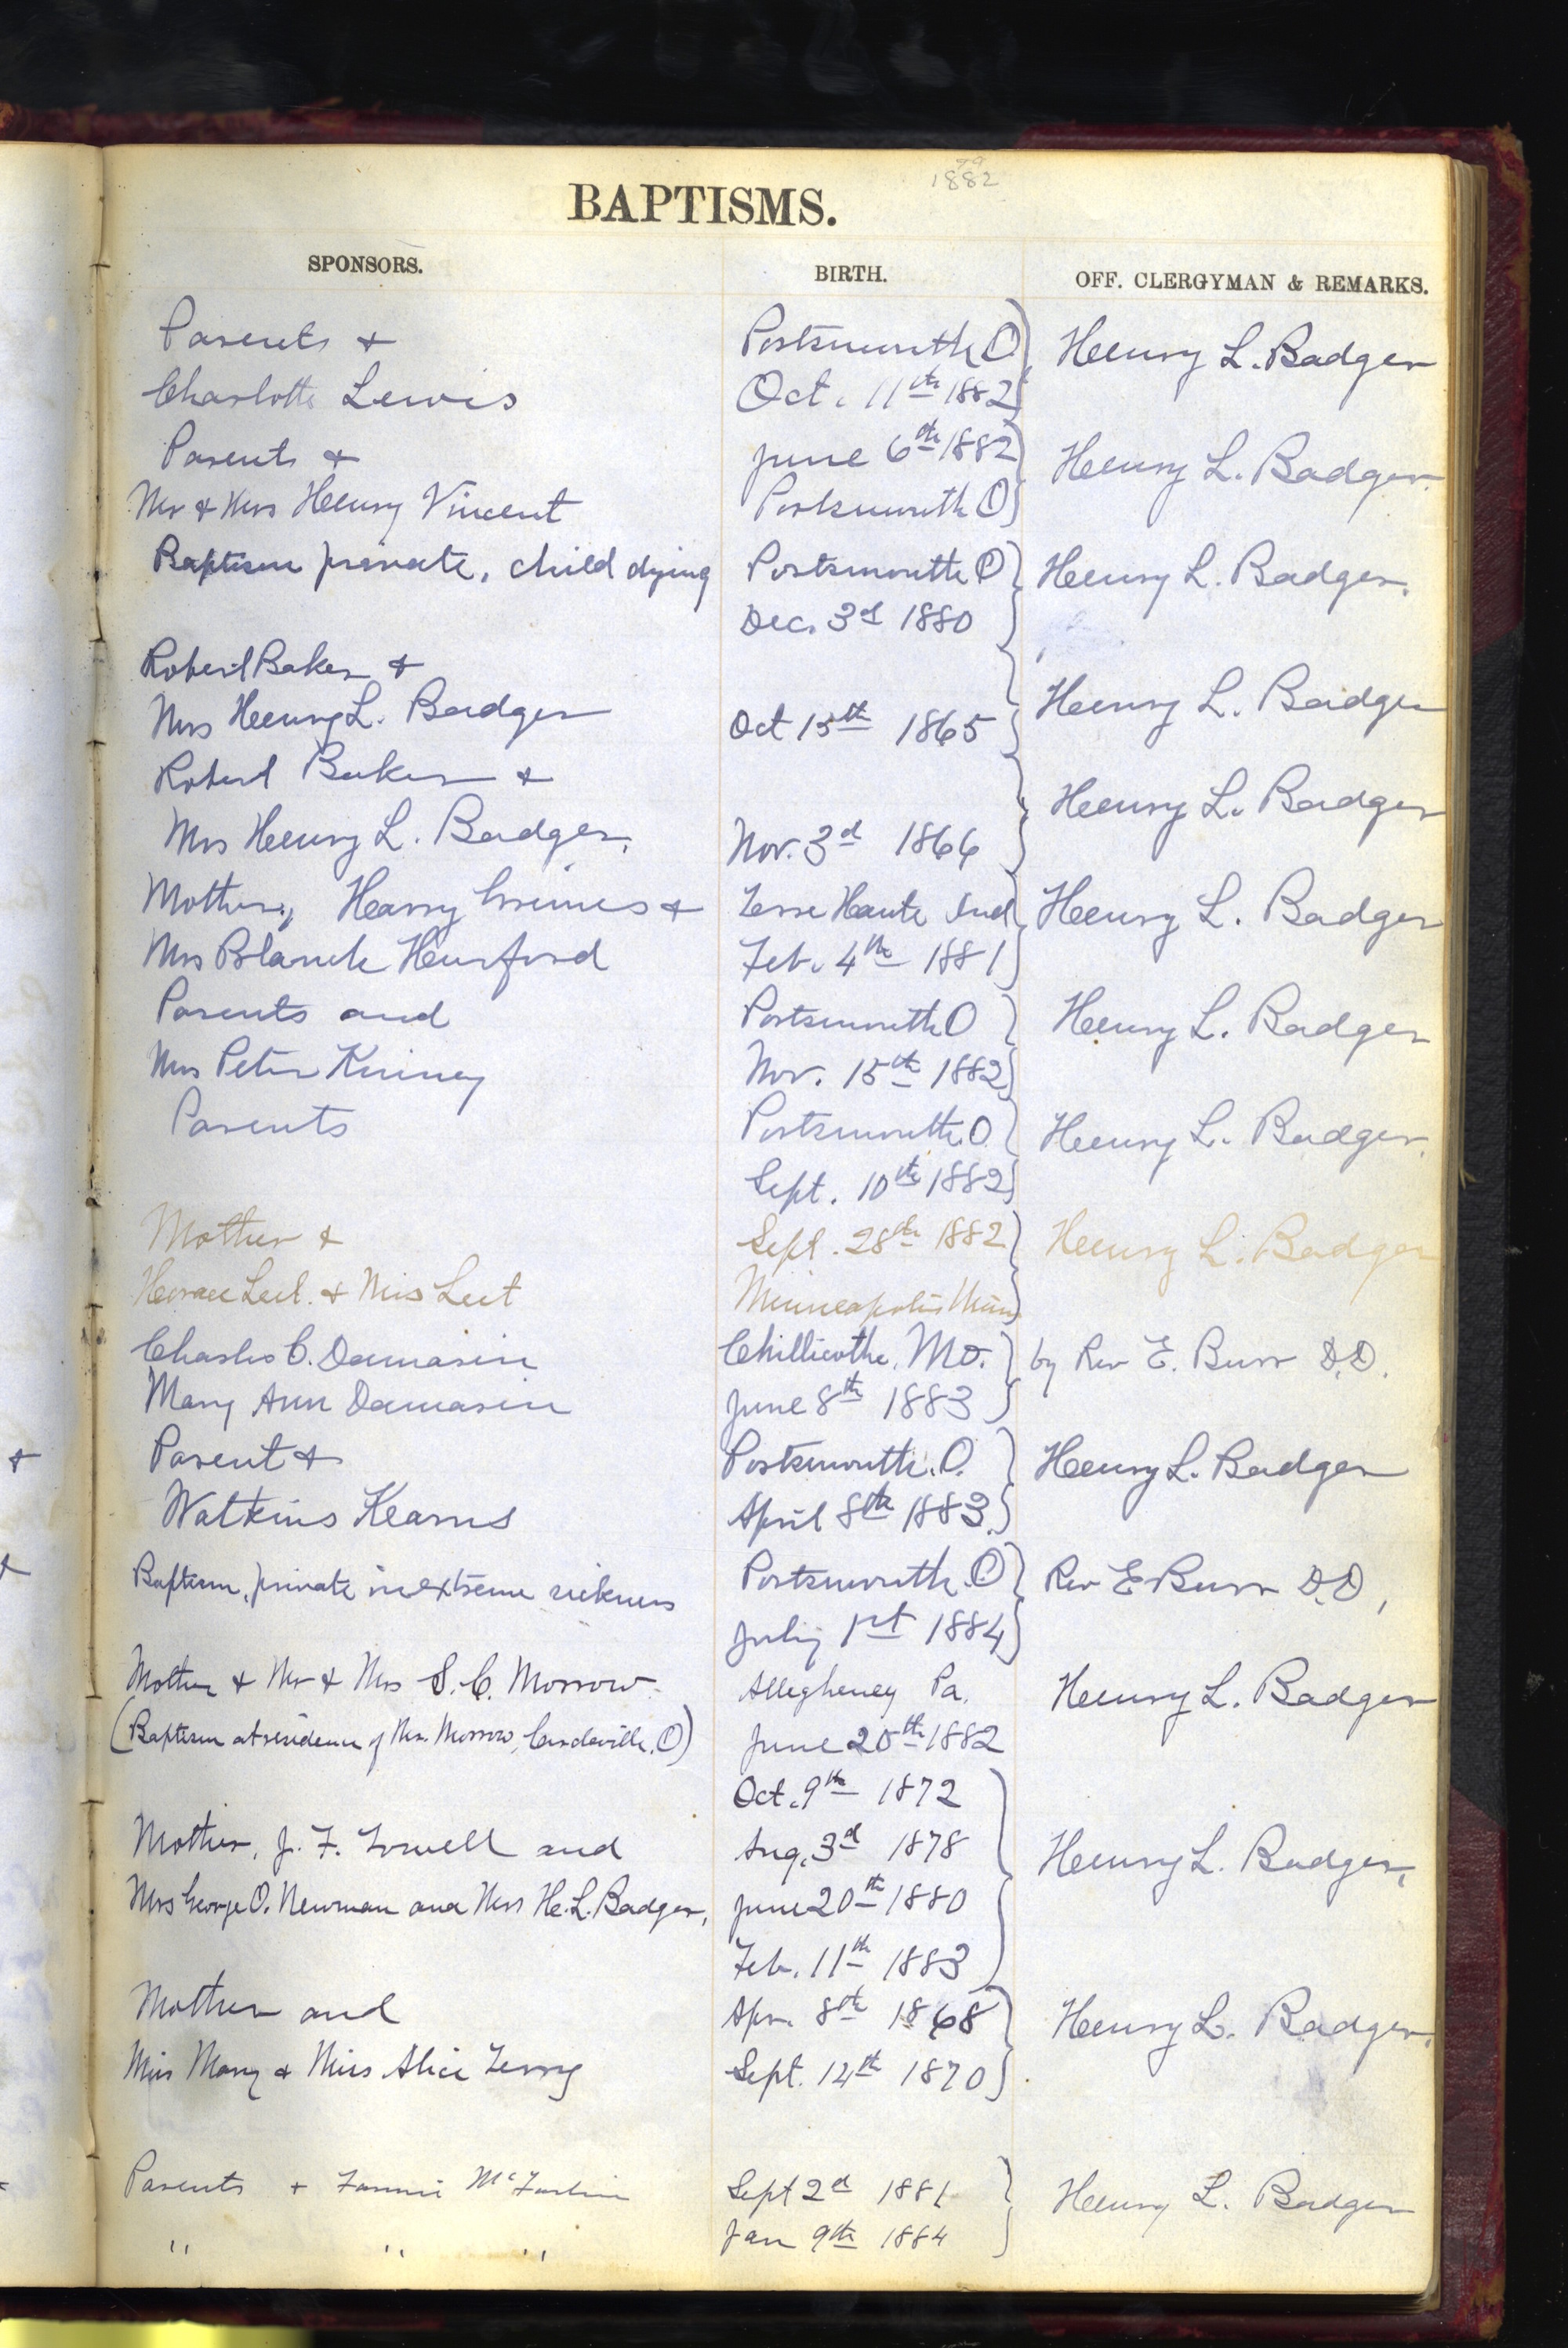 79
1882
BAPTISMS.
SPONSORS. BIRTH. OFF. CLERGYMAN & REMARKS.
Parents + Portsmouth O Henry L. Badger
Charlotte Lewis Oct. 11th 1882
Parents + June 6th 1882 Henry L. Badger.
Mr + Mrs Henry Vincent Portsmouth O
Baptism private, child dying Portsmouth O Henry L. Badger.
Dec. 3d 1880
Robert Baker +
Mrs Henry L. Badger Oct 15th 1865 Henry L. Badger
Robert Baker + Henry L. Badger
Mrs Henry L. Badger. Nov. 3d 1866
Mother, Harry Grimes + Terre Haute Ind Henry L. Badger
Mrs Blanch Hurford Feb. 4th 1881
Parents and Portsmouth O Henry L. Badger
Mrs Peter Kinney Nov. 15th 1882
Parents Portsmouth O. Henry L. Badger.
Sept. 10th 1882
Mother + Sept. 28th 1882 Henry L. Badger
Horace Leet. + Mis Leet Minneapolis Minn
Charles C. Damarin Chillicothe, Mo. by Rev E. Burr D.D.
Mary Ann Damarin June 8th 1883
Parent + Portsmouth. O. Henry L. Badger
Watkins Kearns April 8th 1883.
Baptism, private in extreme sickness Portsmouth. O Rev E Burr D.D,
July 1st 1884
Mother + Mr + Mrs S. C. Morrow. Allegheney Pa. Henry L. Badger
(Baptism at residence of Mr. Morrow, O) June 20th 1882
Oct. 9th 1872
Mother, J. F. Towell and Aug. 3d 1878 Henry L. Badger,
Mrs George O. Newman and Mrs H. L. Badger, June 20th 1880
Feb. 11th 1883
Mother and Apr. 8th 1868 Henry L. Badger.
Miss Mary + Miss Alice Terry Sept. 14th 1870
Parents + Fannie McFarlin Sept 2d 1881 Henry L. Badger
" " " Jan 9th 1884